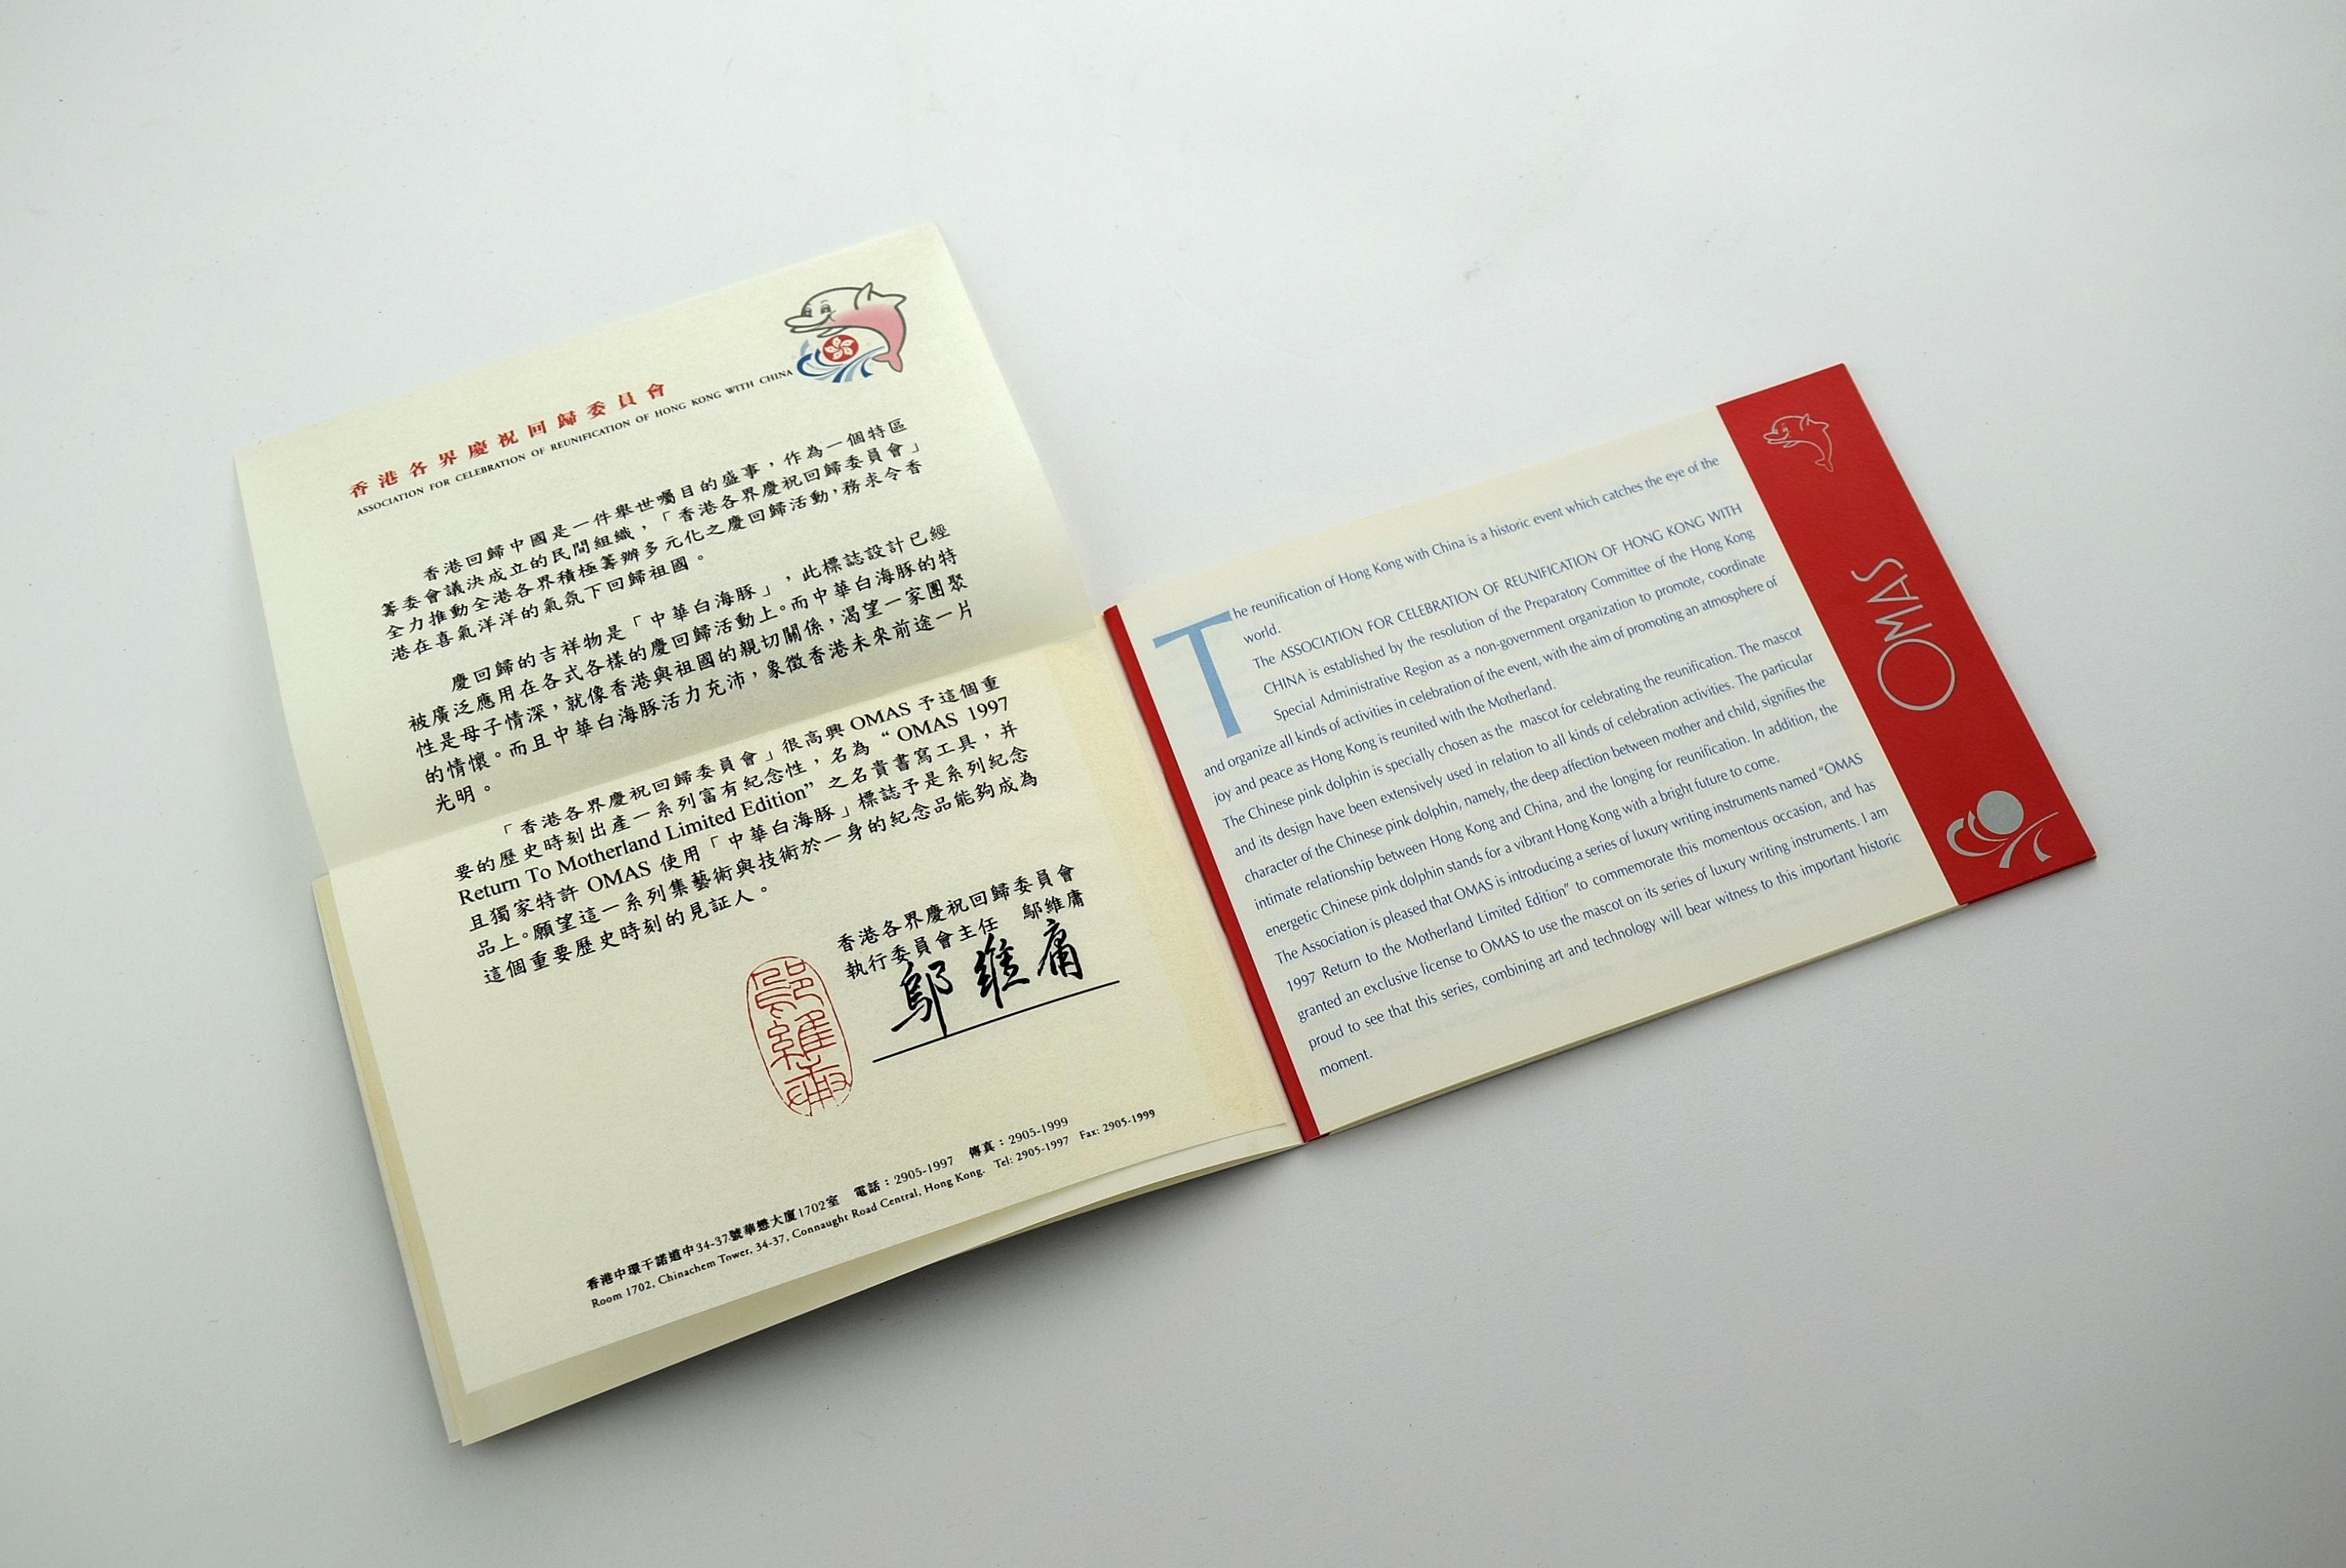 香港各界慶祝回歸委員會
ASSOCIATION FOR CELEBRATION OF REUNIFICATION OF HONG KONG WITH CHINA
香港回歸中國是一件舉世囑目的盛事，作為一個特區
籌委會議決成立的民間組織，「香港各界慶祝回歸委員會」
全力推動全港各界積極籌辦多元化之慶回歸活動，務求令香
港在喜氣洋洋的氣氛下回歸祖國。
慶回歸的吉祥物是「中華白海豚」，此標誌設計已經
被廣泛應用在各式各樣的慶回歸活動上。而中華白海豚的特
性是母子情深，就像香港與祖國的親切關係，渴望一家團聚
的情懷。而且中華白海豚活力充沛，象徵香港未來前途一片
光明。
「香港各界慶祝回歸委員會」很高興 OMAS 予這個重
要的歷史時刻出產一系列富有紀念性，名為 “ OMAS 1997
Return To Motherland Limited Edition” 之名貴書寫工具，并
且獨家特許 OMAS 使用「中華白海豚」標誌予是系列紀念
品上。願望這一系列集藝術與技術於一身的紀念品能夠成為
這個重要歷史時刻的見証人。
香港各界慶祝回歸委員會
執行委員會主任 鄔維庸
鄔維庸
鄔維庸
香港中環干諾道中34-37號華懋大廈1702室 電話：2905-1997 傳真：2905-1999
Room 1702, Chinachem Tower, 34-37, Connaught Road Central, Hong Kong. Tel: 2905-1997 Fax: 2905-1999
The reunification of Hong Kong with China is a historic event which catches the eye of the
world.
The ASSOCIATION FOR CELEBRATION OF REUNIFICATION OF HONG KONG WITH
CHINA is established by the resolution of the Preparatory Committee of the Hong Kong
Special Administrative Region as a non-government organization to promote, coordinate
and organize all kinds of activities in celebration of the event, with the aim of promoting an atmosphere of
joy and peace as Hong Kong is reunited with the Motherland.
The Chinese pink dolphin is specially chosen as the mascot for celebrating the reunification. The mascot
and its design have been extensively used in relation to all kinds of celebration activities. The particular
character of the Chinese pink dolphin, namely, the deep affection between mother and child, signifies the
intimate relationship between Hong Kong and China, and the longing for reunification. In addition, the
energetic Chinese pink dolphin stands for a vibrant Hong Kong with a bright future to come.
The Association is pleased that OMAS is introducing a series of luxury writing instruments named “OMAS
1997 Return to the Motherland Limited Edition” to commemorate this momentous occasion, and has
granted an exclusive license to OMAS to use the mascot on its series of luxury writing instruments. I am
proud to see that this series, combining art and technology will bear witness to this important historic
moment.
OMAS